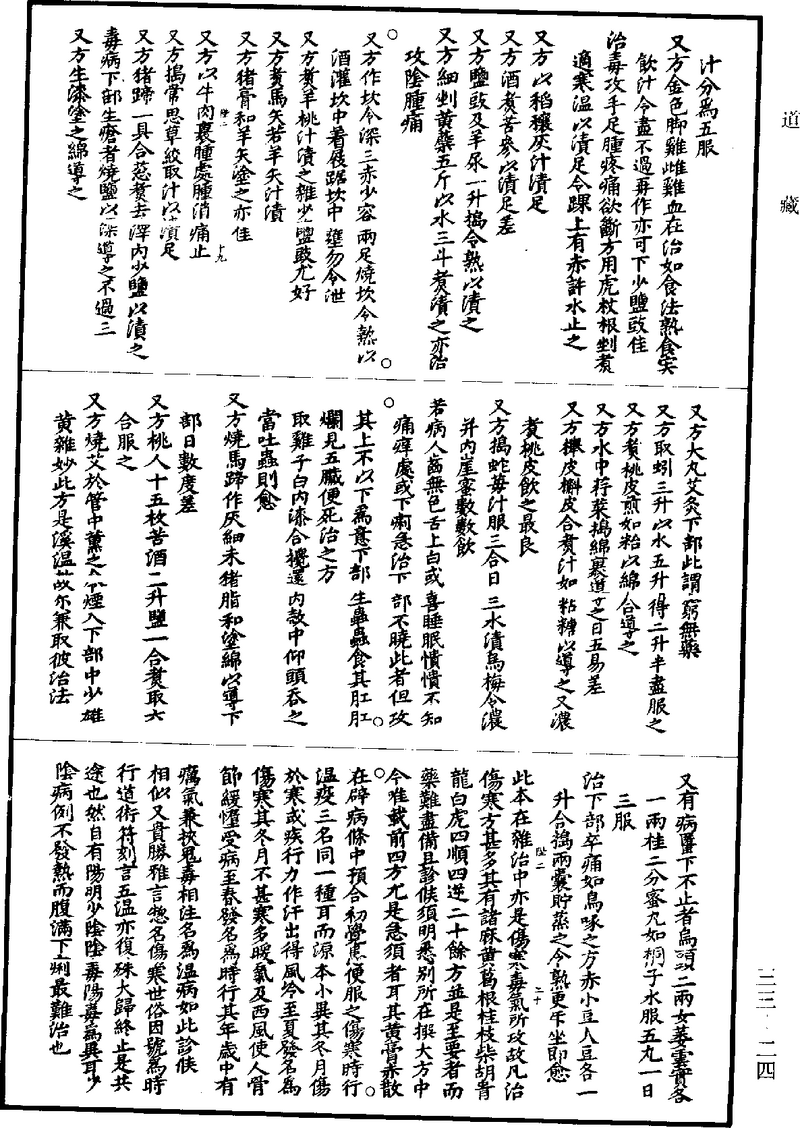 道藏
汁分爲五服
又方金色脚雞雌雞血在治如食法熟食宍
飲汁令盡不過再作亦可下少鹽豉佳
治毒攻手足腫疼痛欲斷方用虎杖根剉煮
適寒温以漬足令踝上有赤許水止之
又方以稻穰灰汁漬足
又方酒煮苦參以漬足差
又方鹽豉及羊尿一升搗令熟以漬之
又方細剉黃蘗五斤以水三斗煮漬之亦治
攻陰腫痛
又方作坎令深三赤少容兩足燒坎令熱以
酒灌坎中著屐踞坎中壅勿令泄
又方煮羊桃汁漬之雜少鹽豉尤好
又方煮馬矢若羊矢汁漬
又方豬膏和羊矢塗之亦佳
又方以牛肉裹腫處腫消痛止
又方搗常思草絞取汁以漬足
又方豬蹄一具合葱煮去滓内少鹽以漬之
毒病下部生瘡者燒鹽以深導之不過三
又方生漆塗之綿導之
又方大丸艾灸下部此謂窮無藥
又方取蚓三升以水五升得二升半盡服之
又方煮桃皮煎如粘以綿合導之
又方水中荇菜搗綿裹導之日五易差
又方櫸皮槲皮合煮汁如粘糖以導之又濃
煮桃皮飲之最良
又方搗蛇莓汁服三合日三水漬烏梅令濃
并内崖蜜數數飲
若病人齒無色舌上白或喜睡眠憒憒不知
痛癢處或下痢急治下部不曉此者但攻
其上不以下爲意下部生蟲蟲食其肛肛
爛見五臟便死治之方
取雞子白内漆合攪還内殼中仰頭吞之
當吐蟲則愈
又方燒馬蹄作灰細末豬脂和塗綿以導下
部日數度差
又方桃人十五枚苦酒二升鹽一合煮取六
合服之
又方燒艾於管中薰之令煙入下部中少雄
黃雜妙此方是溪温故尓兼取彼治法
又有病䘌下不止者烏頭二兩女萎雲實各
一兩桂二分蜜丸如桐子水服五丸一日
三服
治下部卒痛如鳥啄之方赤小豆大豆各一
升合搗兩囊貯蒸之令熟更牙坐即愈
此本在雜治中亦是傷寒毒氣所攻故凡治
傷寒方甚多其有諸麻黃葛根桂枝柴胡青
龍白虎四順四逆二十餘方並是至要者而
藥難盡備且診候須明悉别所在撰大方中
今唯載前四方尤是急須者耳其黃膏赤散
在辟病條中預合初覺患便服之傷寒時行
温疫三名同一種耳而源本小異其冬月傷
於寒或疾行力作汗出得風冷至夏發名爲
傷寒其冬月不甚寒多暖氣及西風使人骨
節緩墮受病至春發名爲時行其年歲中有
癘氣兼挾鬼毒相注名爲温病如此診候
相似又貴勝雅言揔名傷寒世俗因號爲時
行道術符刻言五温亦復殊大歸終止是共
途也然自有陽明少陰陰毒陽毒爲異耳少
陰病例不發熱而腹滿下痢最難治也
三三·二四